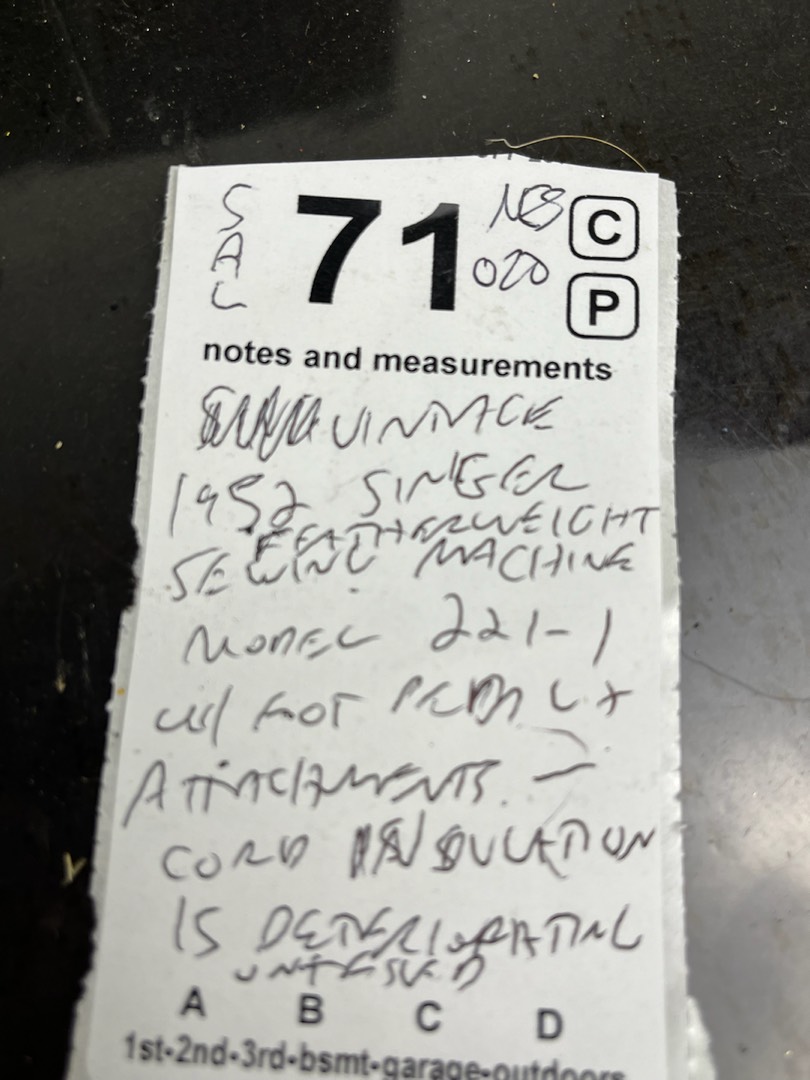 SAL 71 NES C
020 P
notes and measurements
VINTAGE
1952 SINGER
FEATHERWEIGHT
SEWING MACHINE
MODEL 221-1
W/ FOOT PEDAL +
ATTACHMENTS. —
CORD INSULATION
IS DETERIORATING
UNTESTED
A B C D
1st-2nd-3rd-bsmt-garage-outdoors